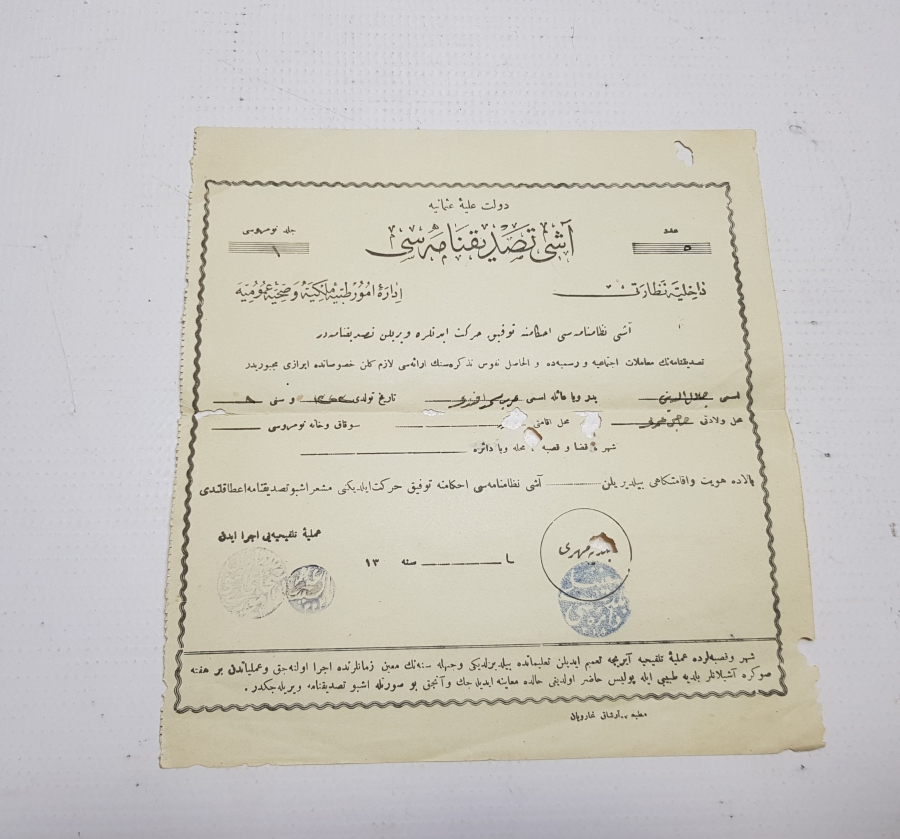 دولت علیهٔ عثمانیه
عدد
٥
آشی تصدیقنامه‌سی
جلد نومروسی
١
داخلیه نظارتی
ادارهٔ امور طبیهٔ ملکیه و صحیهٔ عمومیه
آشی نظامنامه‌سی احکامنه توفیق حرکت ایدنلره ویریلن تصدیقنامه‌در
تصدیقنامه‌نك معاملات اجتماعیه و رسمیه‌ده و الحاصل نفوس تذکره‌سنك ارائه‌سی لازم کلن خصوصاتده ابرازی مجبوریدر
اسمی جلال الدین پدر ویا عائله اسمی تاریخ تولدی و سنی
محل ولادتی محل اقامتی سوقاق و خانه نومروسی
شهر قضا و قصبه محله ویا دائره
بالاده هویت و اقامتکاهی بیلدیریلن آشی نظامنامه‌سی احکامنه توفیق حرکت ایلدیکنی مشعر اشبو تصدیقنامه اعطا قلندی
بلدیه مهری
سنه ١٣
عملیهٔ تلقیحیه‌یی اجرا ایدن
شهر و قصبه‌لرده عملیهٔ تلقیحیه آیریجه تعمیم ایدیلن تعلیماتده بیلدیرلدیکی وجهله سنه‌نك معین زمانلرنده اجرا اولنه‌جق و عملیاتدن بر هفته
صوکره آشیلانلر بلدیه طبیبی ایله پولیس حاضر اولدیغی حالده معاینه ایدیله‌جك و آنجق بو صورتله اشبو تصدیقنامه ویریله‌جکدر .